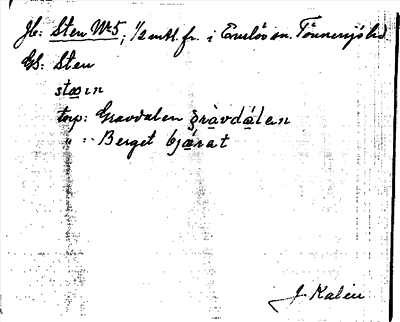 Jb: Sten Nr 5, 1/2 mtl. fr. i Enslöv sn. Tönnersjö hd
GS: Sten
stæın
torp: Gravdalen gràvdálen
" :- Berget bjǽrat
J. Kalén